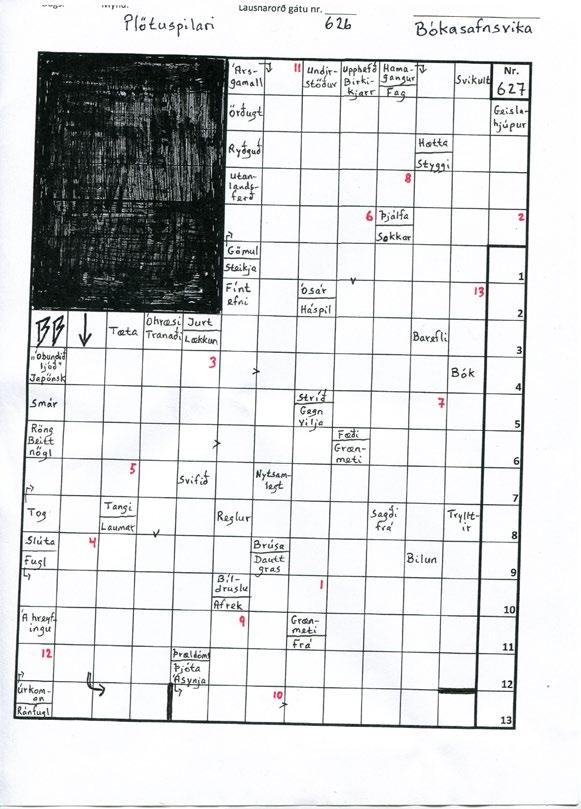 Lausnarorð gátu nr.
Plötuspilari 626 Bókasafnsvika
Ársgamall
11
Undirstöður
Upphefð
Birkikjarr
Hamagangur
Fag
Svikult
Nr.
627
Örðugt
Geislahjúpur
Ryðguð
Hætta
Styggi
Utanlandsferð
8
6
Þjálfa
Sokkar
2
Gömul
Steikja
1
Fínt efni
Ósar
Háspil
13
2
BB
Tæta
Óhræsi
Tranaði
Jurt
Lækkun
Barefli
3
"Óbundið ljóð"
Japönsk
3
Bók
4
Smár
Stríð
Gegn vilja
7
5
Röng
Beitt nögl
Fæði
Grænmeti
6
5
Svifið
Nytsamlegt
7
Tog
Tangi
Laumar
Reglur
Sagði frá
Trylltir
8
Slúta
Fugl
4
Brúsa
Dautt gras
Bilun
9
Bíldruslu
Afrek
1
10
Á hreyfingu
9
Grænmeti
Frá
11
12
Þrældóm
Þjóta
Ásynja
12
Úrkoman
Ránfugl
10
13